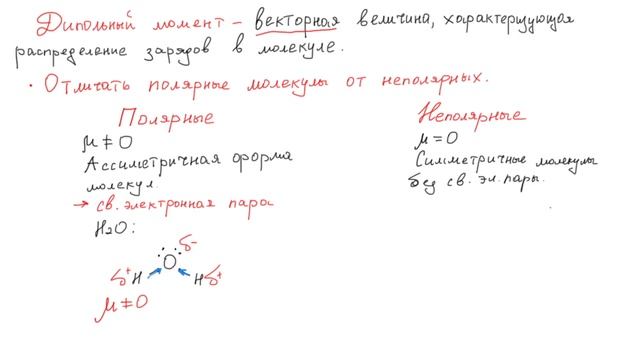 Дипольный момент – векторная величина, характеризующая
распределение зарядов в молекуле.
· Отличать полярные молекулы от неполярных.
Полярные
μ ≠ 0
Ассиметричная форма
молекул.
→ св. электронная пара
H₂O:
δ-
O
δ+ H H δ+
μ ≠ 0
Неполярные
μ = 0
Симметричные молекулы
без св. эл. пары.